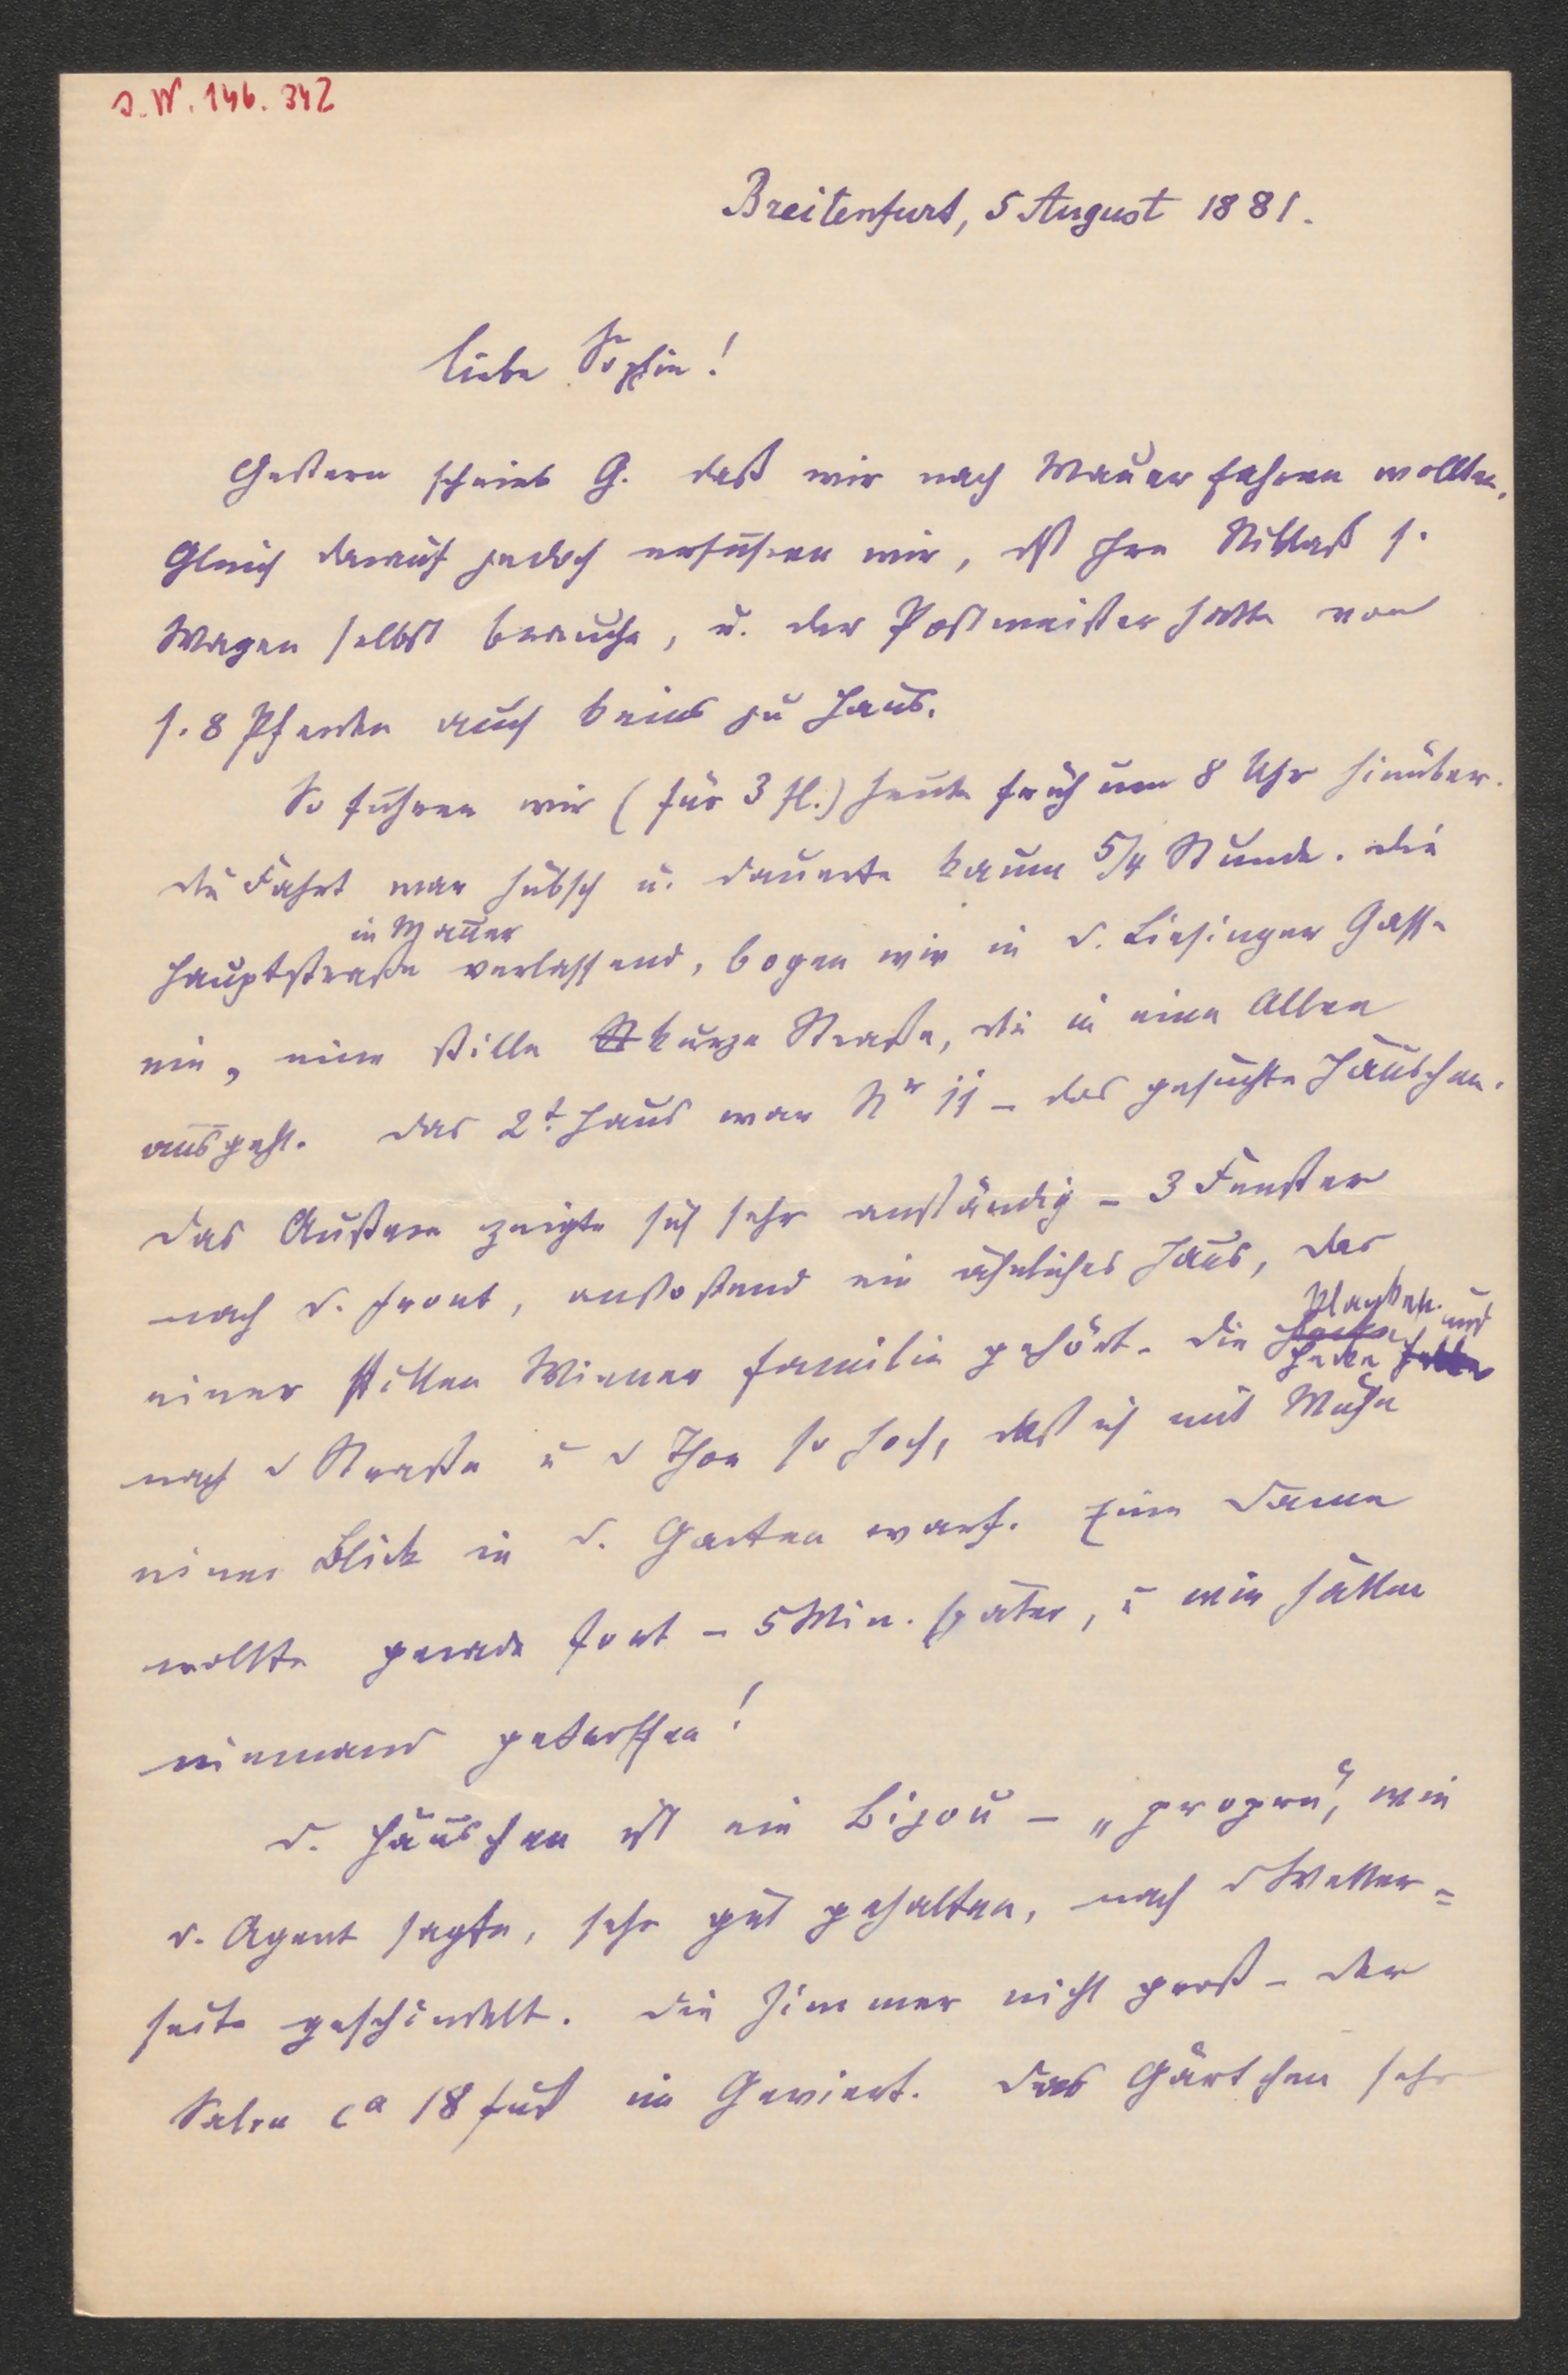 J. N. 146. 342
Breitenfurt, 5 August 1881.
Liebe Sophie!
Gestern schrieb G. daß wir nach Mauer fahren wollten.
Gleich darauf jedoch erfuhren wir, dß Hr Niklaß s.
Wagen selbst brauche, u. der Postmeister hatte von
s. 8 Pferden auch keins zu Haus.
So fuhren wir (für 3 fl.) heute früh um 8 Uhr hinüber.
Die Fahrt war hübsch u. dauerte kaum 5/4 Stunde. Die
in Mauer
Hauptstraße verlassend, bogen wir in d. Liesinger Gasse
ein, eine stille St kurze Straße, die in eine Allee
ausgeht. Das 2t Haus war Nr 11 – das gesuchte Häuschen.
Das Äußere zeigte sich sehr anständig – 3 Fenster
nach d. Front, anstoßend ein ähnliches Haus, das
einer stillen Wiener Familie gehört. Die
Planken und
Hecke
nach d Straße u d Thor so hoch, daß ich mit Mühe
einen Blick in d. Garten warf. Eine Dame
wollte gerade fort – 5 Min. später, u wir hätten
niemand getroffen!
D. Häuschen ist ein Bijou – „propre", wie
d. Agent sagte, sehr gut gehalten, nach d Wetter=
seite geschindelt. Die Zimmer nicht groß – der
Salon ca 18 Fuß im Geviert. Das Gärtchen sehr